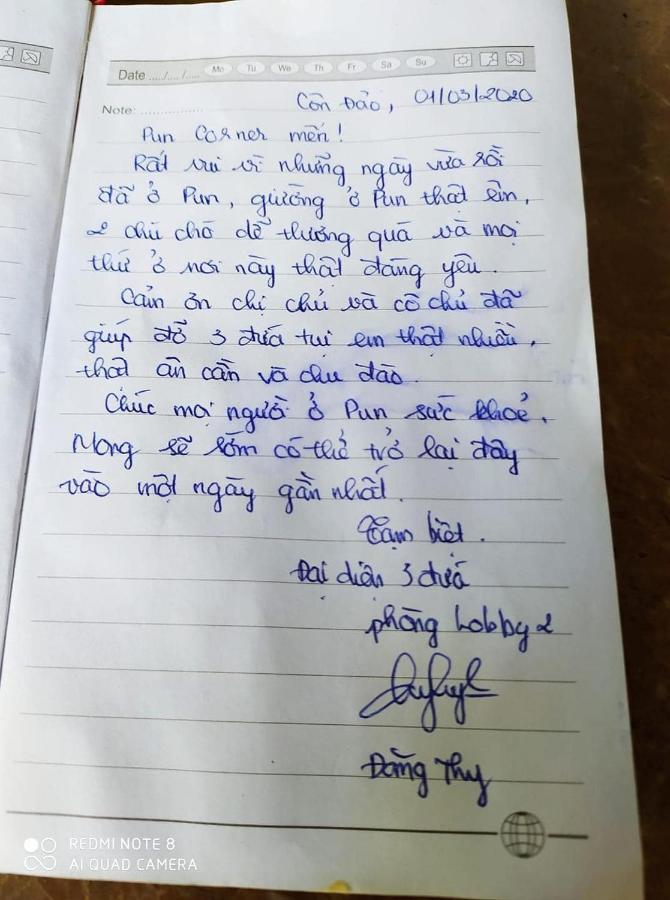 Date ..../..../..... Mo Tu We Th Fr Sa Su
Note: ................ Côn Đảo, 01/03/2020
Pun Corner mến!
Rất vui vì những ngày vừa rồi
đã ở Pun, giường ở Pun thật êm,
2 chú chó dễ thương quá và mọi
thứ ở nơi này thật đáng yêu.
Cảm ơn chị chủ và cô chủ đã
giúp đỡ 3 đứa tụi em thật nhiều,
thật ân cần và chu đáo.
Chúc mọi người ở Pun sức khoẻ.
Mong sẽ sớm có thể trở lại đây
vào một ngày gần nhất.
Tạm biệt.
Đại diện 3 đứa
phòng Lobby 2
Đằng Thy
REDMI NOTE 8
AI QUAD CAMERA